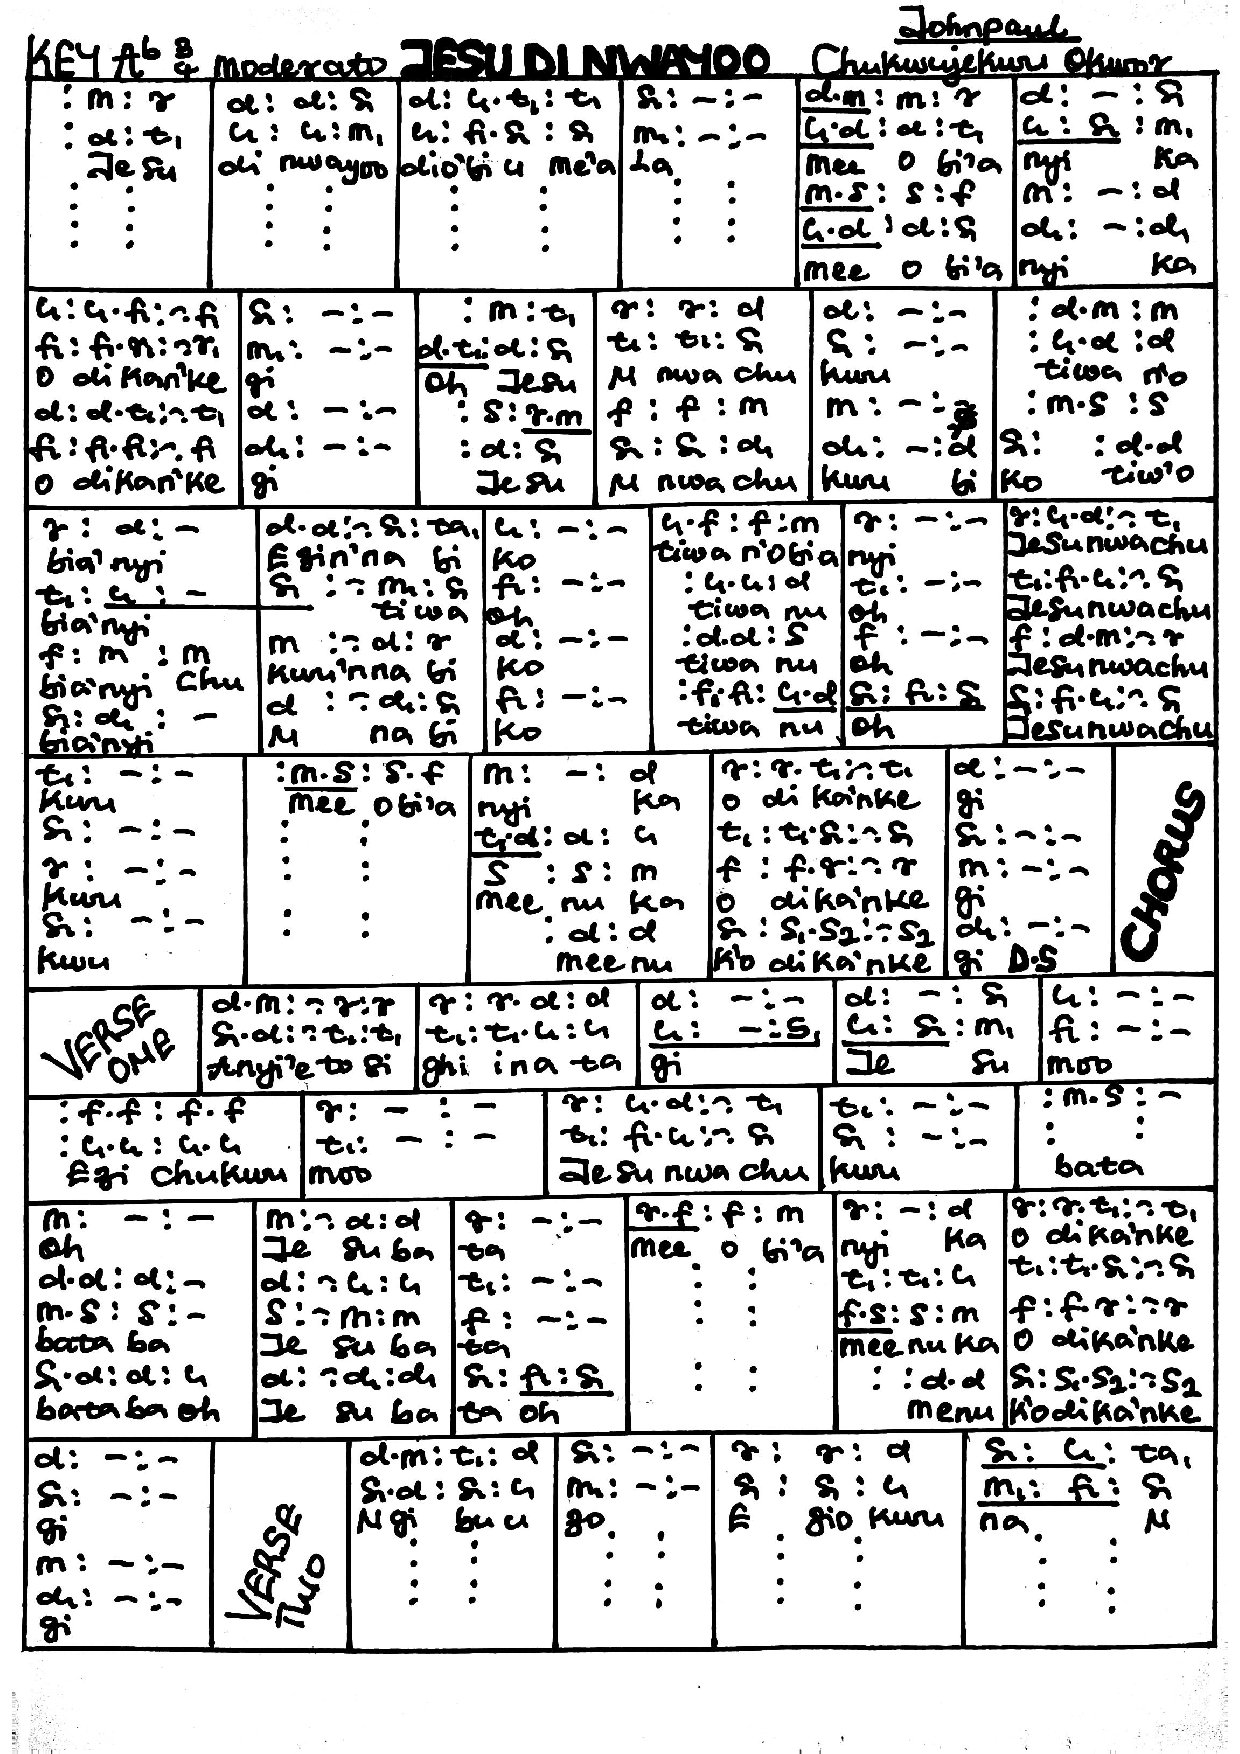 KEY Ab 3/4 Moderato JESU DI NWAYOO Johnpaul Chukwujekwu Okwor
: m : r | d : d : s₁ | d : l₁.t₁ : t₁ | s₁ : – : – | d.m : m : r | d : – : s₁
: d : t₁ | l₁ : l₁ : m₁ | l₁ : fi.s₁ : s₁ | m₁ : – : – | l₁.d : d : t₁ | l₁ : s₁ : m₁
Jesu | di nwayoo | dio'bi u me'a | La | mee O bi'a | nyi Ka
: : | : : | : : | : : | m.s : s : f | m : – : d
: : | : : | : : | : : | l₁.d : d : s₁ | d₁ : – : d₁
mee O bi'a | nyi Ka
l₁ : l₁.fi : ~ fi | s₁ : – : – | : m : t₁ | r : r : d | d : – : – | : d.m : m
fi : fi.r₁ : ~ r₁ | m₁ : – : – | d.t₁ : d : s₁ | t₁ : t₁ : s₁ | s₁ : – : – | : l₁.d : d
O di Kan'Ke | gi | Oh Jesu | N nwa chu | kwu | tiwa n'o
d : d.t₁ : ~ t₁ | d : – : – | : s : r.m | f : f : m | m : – : – | : m.s : s
fi : fi.fi : ~ fi | d₁ : – : – | : d : s₁ | s₁ : s₁ : d₁ | d₁ : – : d | s₁ : : d.d
O diKan'Ke | gi | Jesu | N nwa chu | kwu bi | Ko tiw'o
r : d : – | d.d : ~ s₁ : ta₁ | l₁ : – : – | l₁.f : f : m | r : – : – | r : l₁.d : ~ t₁
bia'nyi | Ezin'na bi | Ko | tiwa n'Obia | nyi | Jesu nwachu
t₁ : l₁ : – | s₁ : ~ m₁ : s₁ | fi : – : – | : l₁.l₁ : d | t₁ : – : – | t₁ : fi.l₁ : ~ s₁
bia'nyi | tiwa | oh | tiwa nu | oh | Jesu nwachu
f : m : m | m : ~ d : r | d : – : – | : d.d : s | f : – : – | f : d.m : ~ r
bia'nyi Chu | kwu'nna bi | Ko | tiwa nu | oh | Jesu nwachu
s₁ : d₁ : – | d : ~ d : s₁ | fi : – : – | : fi.fi : l₁.d | s₁ : fi : s₁ | s₁ : fi.l₁ : ~ s₁
bia'nyi | N na bi | Ko | tiwa nu | oh | Jesu nwachu
t₁ : – : – | : m.s : s.f | m : – : d | r : r.t₁ : ~ t₁ | d : – : – | CHORUS
Kwu | mee Obi'a | nyi Ka | O di Ka'nKe | gi
s₁ : – : – | : : | t₁.d : d : l₁ | t₁ : t₁.s₁ : ~ s₁ | s₁ : – : –
r : – : – | : : | s : s : m | f : f.r : ~ r | m : – : –
Kwu | mee nu Ka | O diKa'nKe | gi
s₁ : – : – | : : | : d : d | s₁ : s₁.s₂ : ~ s₂ | d₁ : – : –
kwu | mee nu | K'o diKa'nKe | gi D.S
VERSE ONE | d.m : ~ r : r | r : r.d : d | d : – : – | d : – : s₁ | l₁ : – : –
s₁.d : ~ t₁ : t₁ | t₁ : t₁.l₁ : l₁ | l₁ : – : s₁ | l₁ : s₁ : m₁ | fi : – : –
Anyi'e to si | ghi ina ta | gi | Je su | moo
: f.f : f.f | r : – : – | r : l₁.d : ~ t₁ | t₁ : – : – | : m.s : –
: l₁.l₁ : l₁.l₁ | t₁ : – : – | t₁ : fi.l₁ : ~ s₁ | s₁ : – : – | : :
Ezi Chukwu | moo | Jesu nwa chu | kwu | bata
m : – : – | m : ~ d : d | r : – : – | r.f : f : m | r : – : d | r : r.t₁ : ~ t₁
oh | Je su ba | ta | mee O bi'a | nyi Ka | O diKa'nKe
d.d : d : – | d : ~ l₁ : l₁ | t₁ : – : – | : : | t₁ : t₁ : l₁ | t₁ : t₁.s₁ : ~ s₁
m.s : s : – | s : ~ m : m | f : – : – | : : | f.s : s : m | f : f.r : ~ r
bata ba | Je su ba | ta | mee nu Ka | O diKa'nKe
s₁.d : d : l₁ | d : ~ d₁ : d₁ | s₁ : fi : s₁ | : : | : : d.d | s₁ : s₁.s₂ : ~ s₂
bata ba oh | Je su ba | ta oh | menu | K'odiKa'nKe
d : – : – | VERSE TWO | d.m : t₁ : d | s₁ : – : – | r : r : d | s₁ : l₁ : ta₁
s₁ : – : – | s₁.d : s₁ : l₁ | m₁ : – : – | s₁ : s₁ : l₁ | m₁ : fi : s₁
gi | N gi bu u | zo | E zio kwu | na N
m : – : – | : : | : : | : : | : :
d₁ : – : – | : : | : : | : : | : :
gi